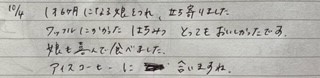 10/4 1才6ヶ月になる娘をつれ、立ち寄りました。
ワッフルにかかった はちみつ とってもおいしかったです。
娘も喜んで食べました。
アイスコーヒーに 合いますね。